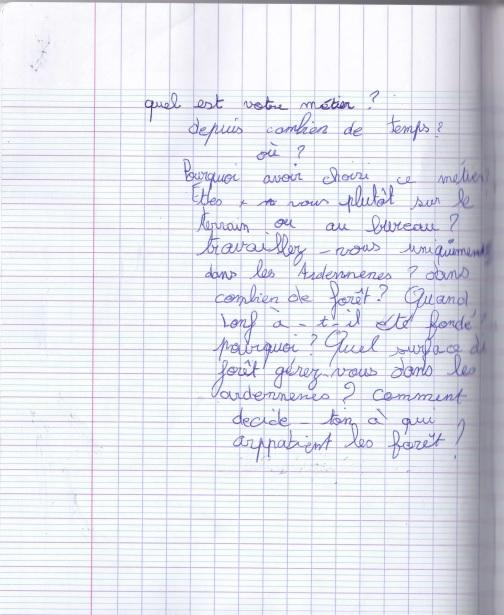 quel est votre métier ?
depuis combien de temps ?
où ?
Pourquoi avoir choisi ce métier
Etes - vous plutôt sur le
terrain ou au bureau ?
travaillez - vous uniquement
dans les Ardennenes ? dans
combien de forêt ? Quand
l'onf à - t - il été fondé ?
pourquoi ? Quel surface de
forêt gérez-vous dans les
ardennenes ? comment
decide - ton à qui
arppatient les forêt ?